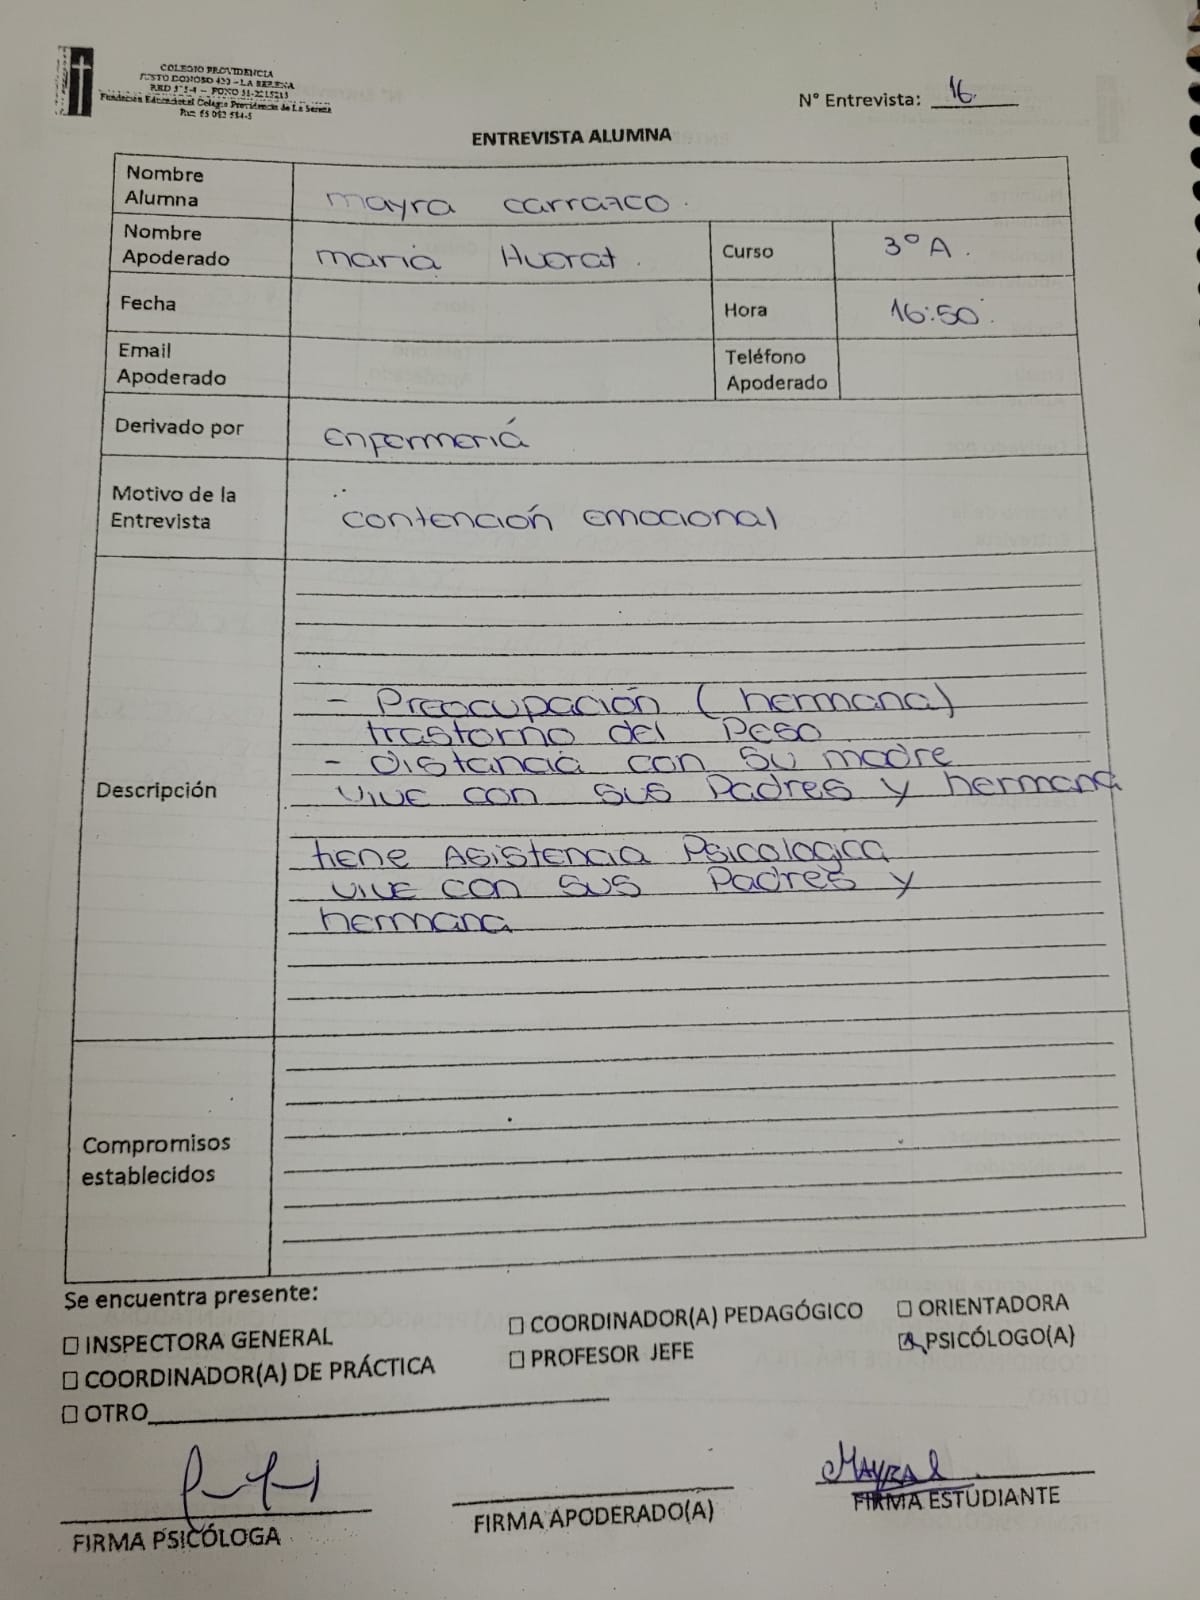 COLEGIO PROVIDENCIA
JUSTO DONOSO 420 - LA SERENA
Fundación Educacional Colegio Providencia de La Serena
N° Entrevista: 16.
ENTREVISTA ALUMNA
Nombre Alumna
mayra carrazco.
Nombre Apoderado
maria
Curso
3° A.
Fecha
Hora
16:50.
Email Apoderado
Teléfono Apoderado
Derivado por
Enfermeriá
Motivo de la Entrevista
contención emocional
Descripción
- Preocupación (hermana)
trastorno del Peso
- Distancia con su madre
vive con sus Padres y hermana
tiene Asistencia Psicologica
vive con sus Padres y
hermana
Compromisos establecidos
Se encuentra presente:
☐ INSPECTORA GENERAL
☐ COORDINADOR(A) PEDAGÓGICO
☐ ORIENTADORA
☐ COORDINADOR(A) DE PRÁCTICA
☐ PROFESOR JEFE
☒ PSICÓLOGO(A)
☐ OTRO
FIRMA PSICÓLOGA
FIRMA APODERADO(A)
MAYRA
FIRMA ESTUDIANTE